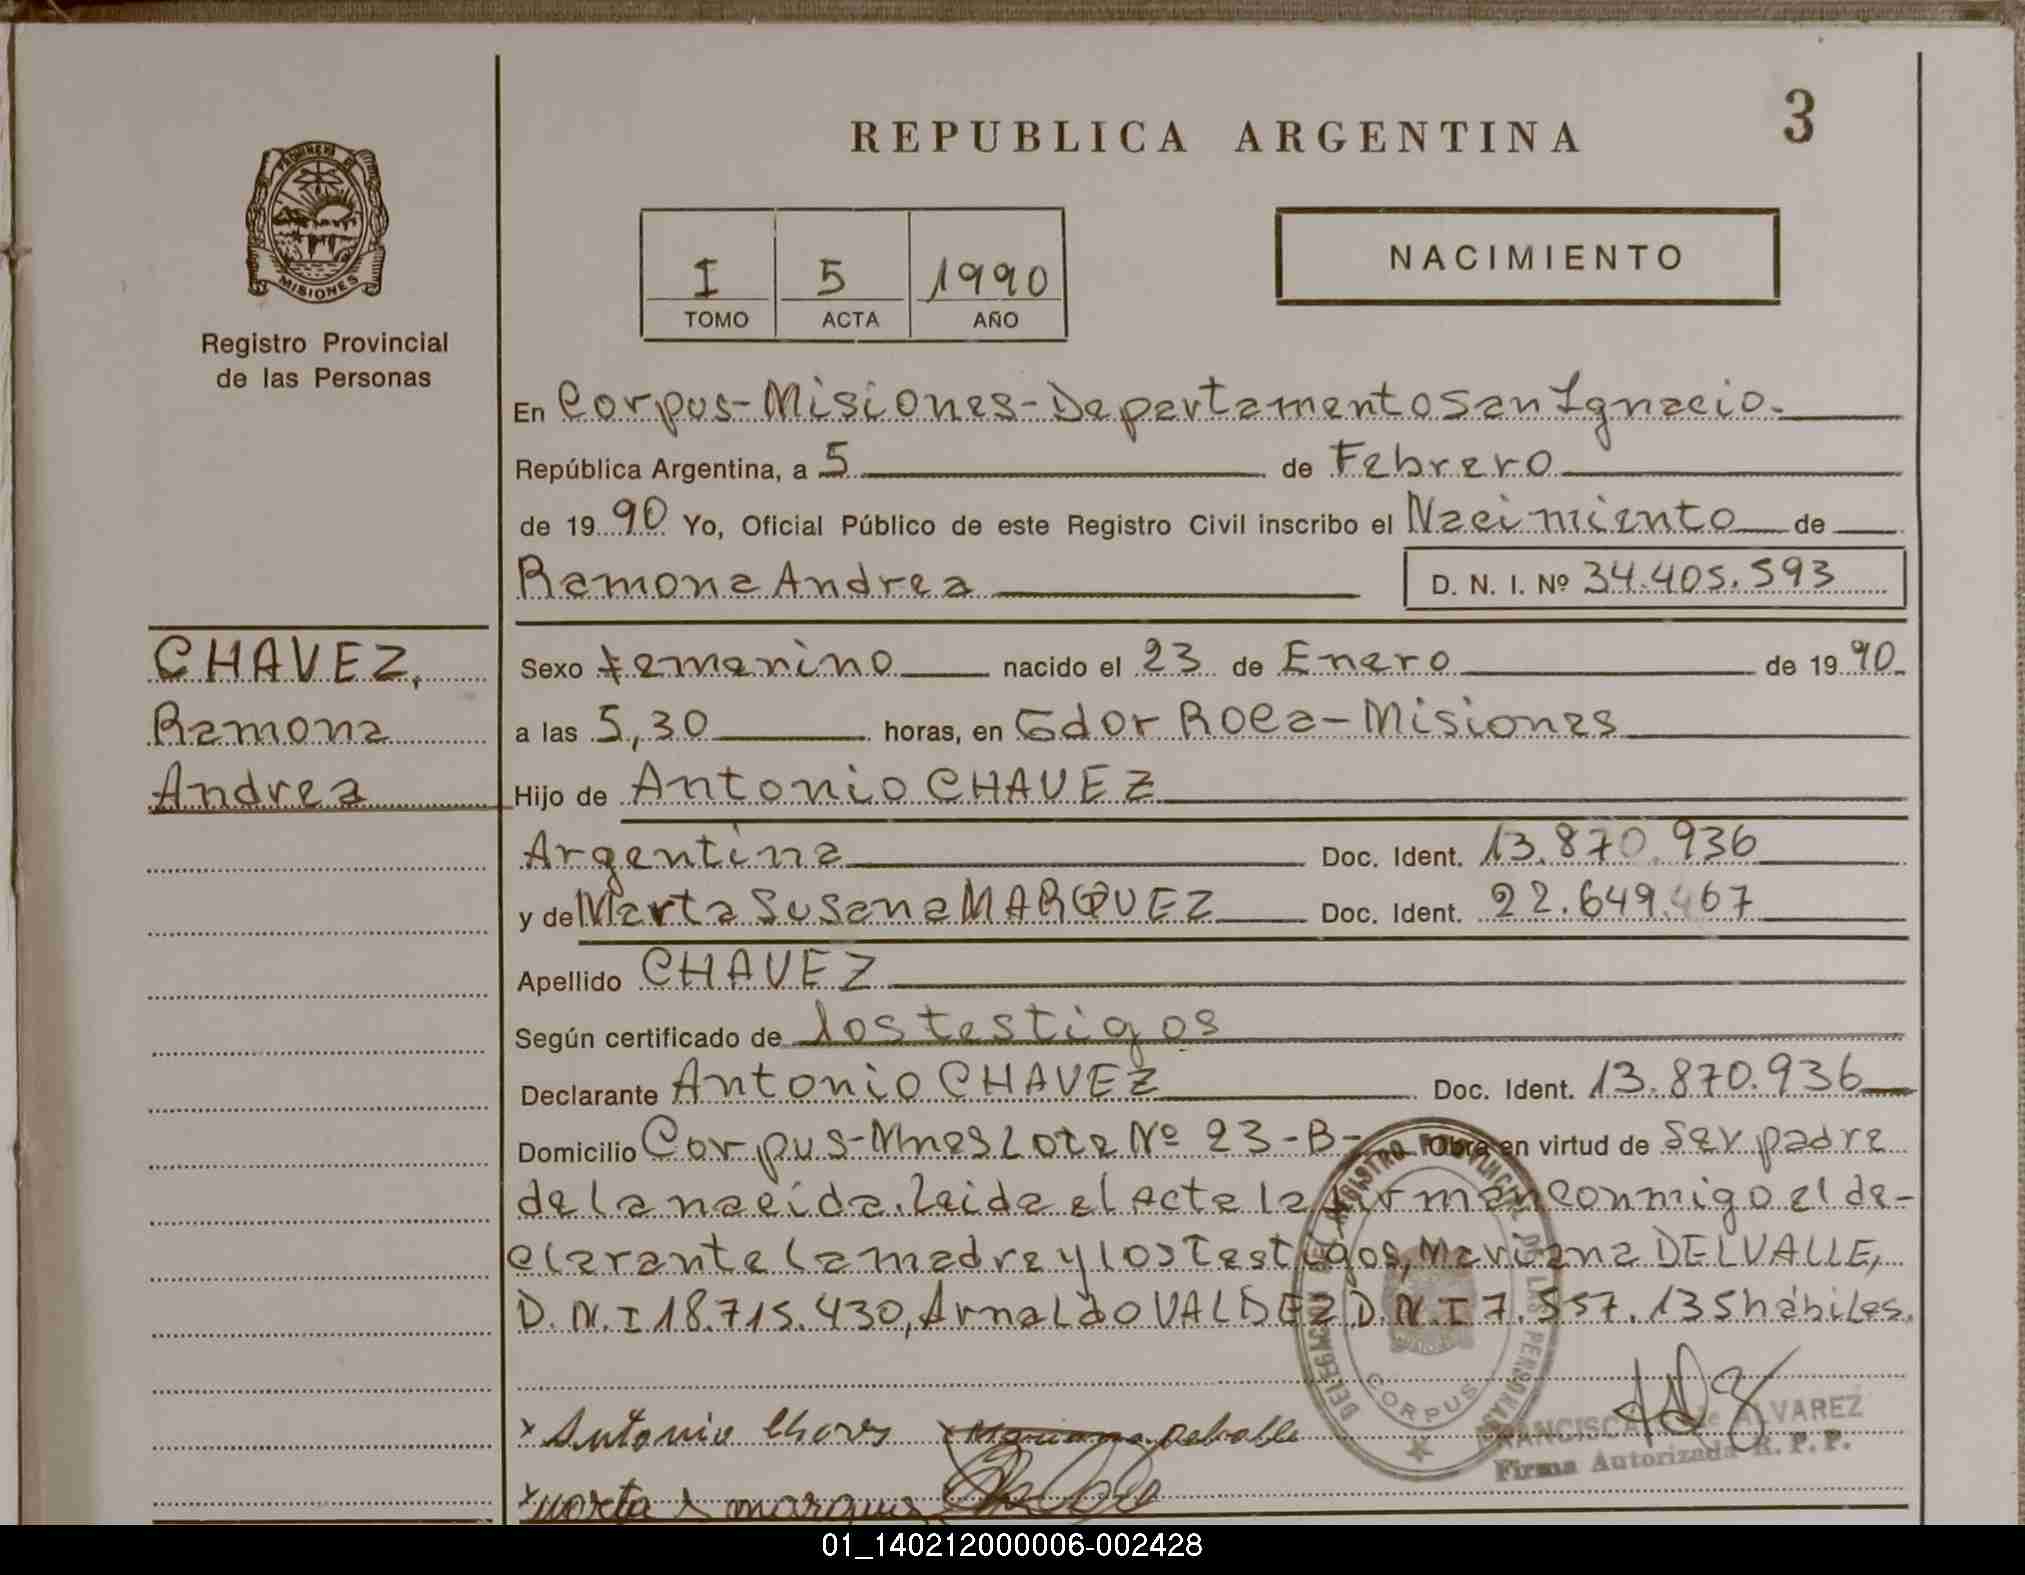 REPUBLICA ARGENTINA
3
PROVINCIA DE
MISIONES
Registro Provincial
de las Personas
I 5 1990
TOMO ACTA AÑO
NACIMIENTO
En Corpus-Misiones-Departamento San Ignacio.
República Argentina, a 5 de Febrero
de 1990 Yo, Oficial Público de este Registro Civil inscribo el Nacimiento de
Ramona Andrea D. N. I. Nº 34.405.593
CHAVEZ,
Ramona
Andrea
Sexo femenino nacido el 23 de Enero de 1990.
a las 5,30 horas, en Gdor Roca-Misiones
Hijo de Antonio CHAVEZ
Argentina Doc. Ident. 13.870.936
y de Marta Susana MARQUEZ Doc. Ident. 22.649.467
Apellido CHAVEZ
Según certificado de los testigos
Declarante Antonio CHAVEZ Doc. Ident. 13.870.936
Domicilio Corpus-Mnes Lote Nº 23-B- Obra en virtud de ser padre
de la nacida. Leida el acta la firman conmigo el de-
clarante la madre y los testigos, Mariana DELVALLE,
D.N.I 18.715.430, Arnaldo VALDEZ D.N.I 7.557.135 hábiles.
DELEGACION DEL REGISTRO PROVINCIAL DE LAS PERSONAS
CORPUS
x Antonio Chaves x Mariana Delballe
FRANCISCA de ALVAREZ
Firma Autorizada R. P. P.
x Marta S marques
01_140212000006-002428